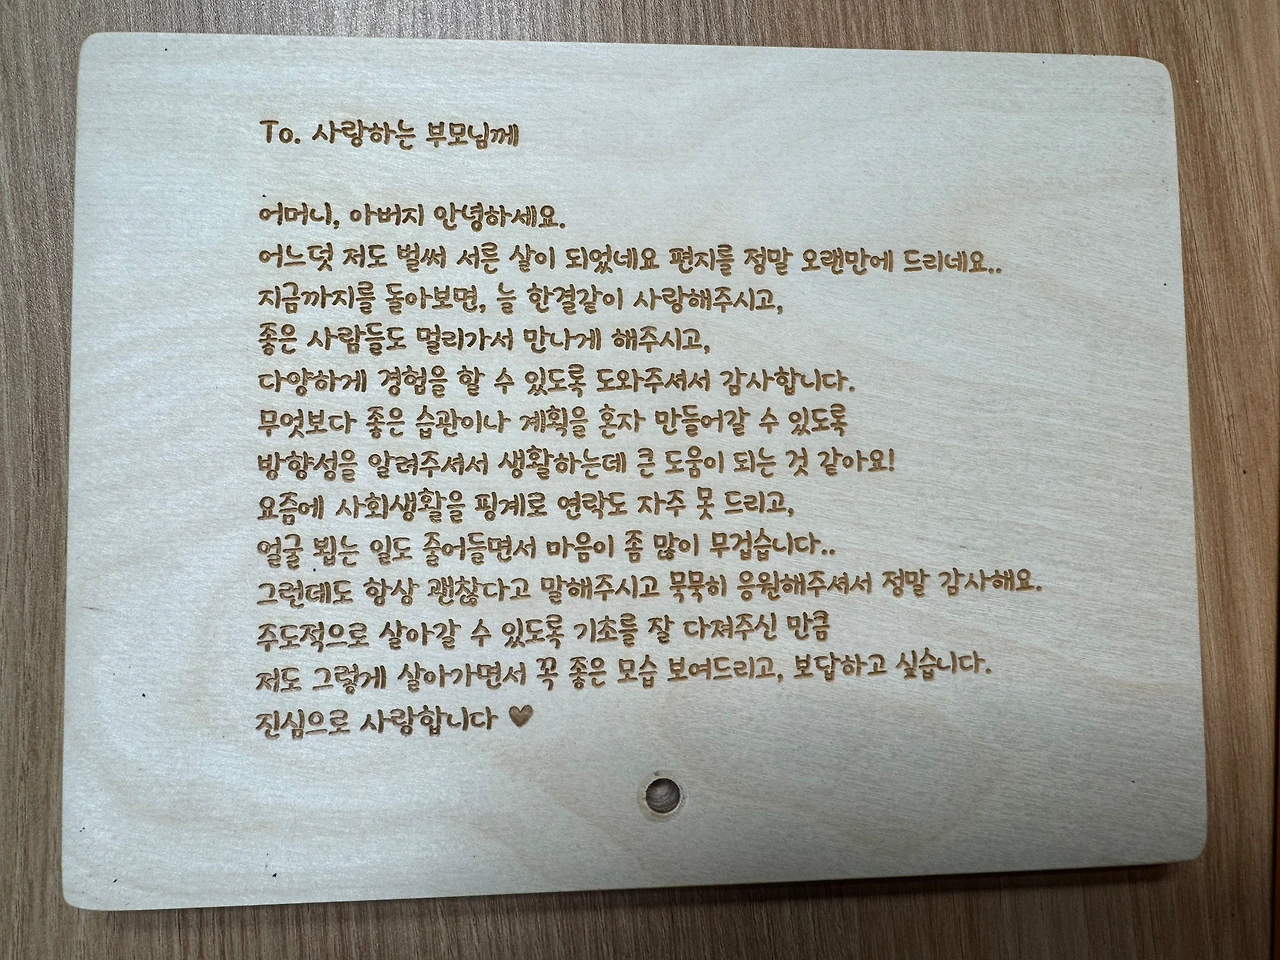 To. 사랑하는 부모님께
어머니, 아버지 안녕하세요.
어느덧 저도 벌써 서른 살이 되었네요 편지를 정말 오랜만에 드리네요..
지금까지를 돌아보면, 늘 한결같이 사랑해주시고,
좋은 사람들도 멀리가서 만나게 해주시고,
다양하게 경험을 할 수 있도록 도와주셔서 감사합니다.
무엇보다 좋은 습관이나 계획을 혼자 만들어갈 수 있도록
방향성을 알려주셔서 생활하는데 큰 도움이 되는 것 같아요!
요즘에 사회생활을 핑계로 연락도 자주 못 드리고,
얼굴 뵙는 일도 줄어들면서 마음이 좀 많이 무겁습니다..
그런데도 항상 괜찮다고 말해주시고 묵묵히 응원해주셔서 정말 감사해요.
주도적으로 살아갈 수 있도록 기초를 잘 다져주신 만큼
저도 그렇게 살아가면서 꼭 좋은 모습 보여드리고, 보답하고 싶습니다.
진심으로 사랑합니다 ♥